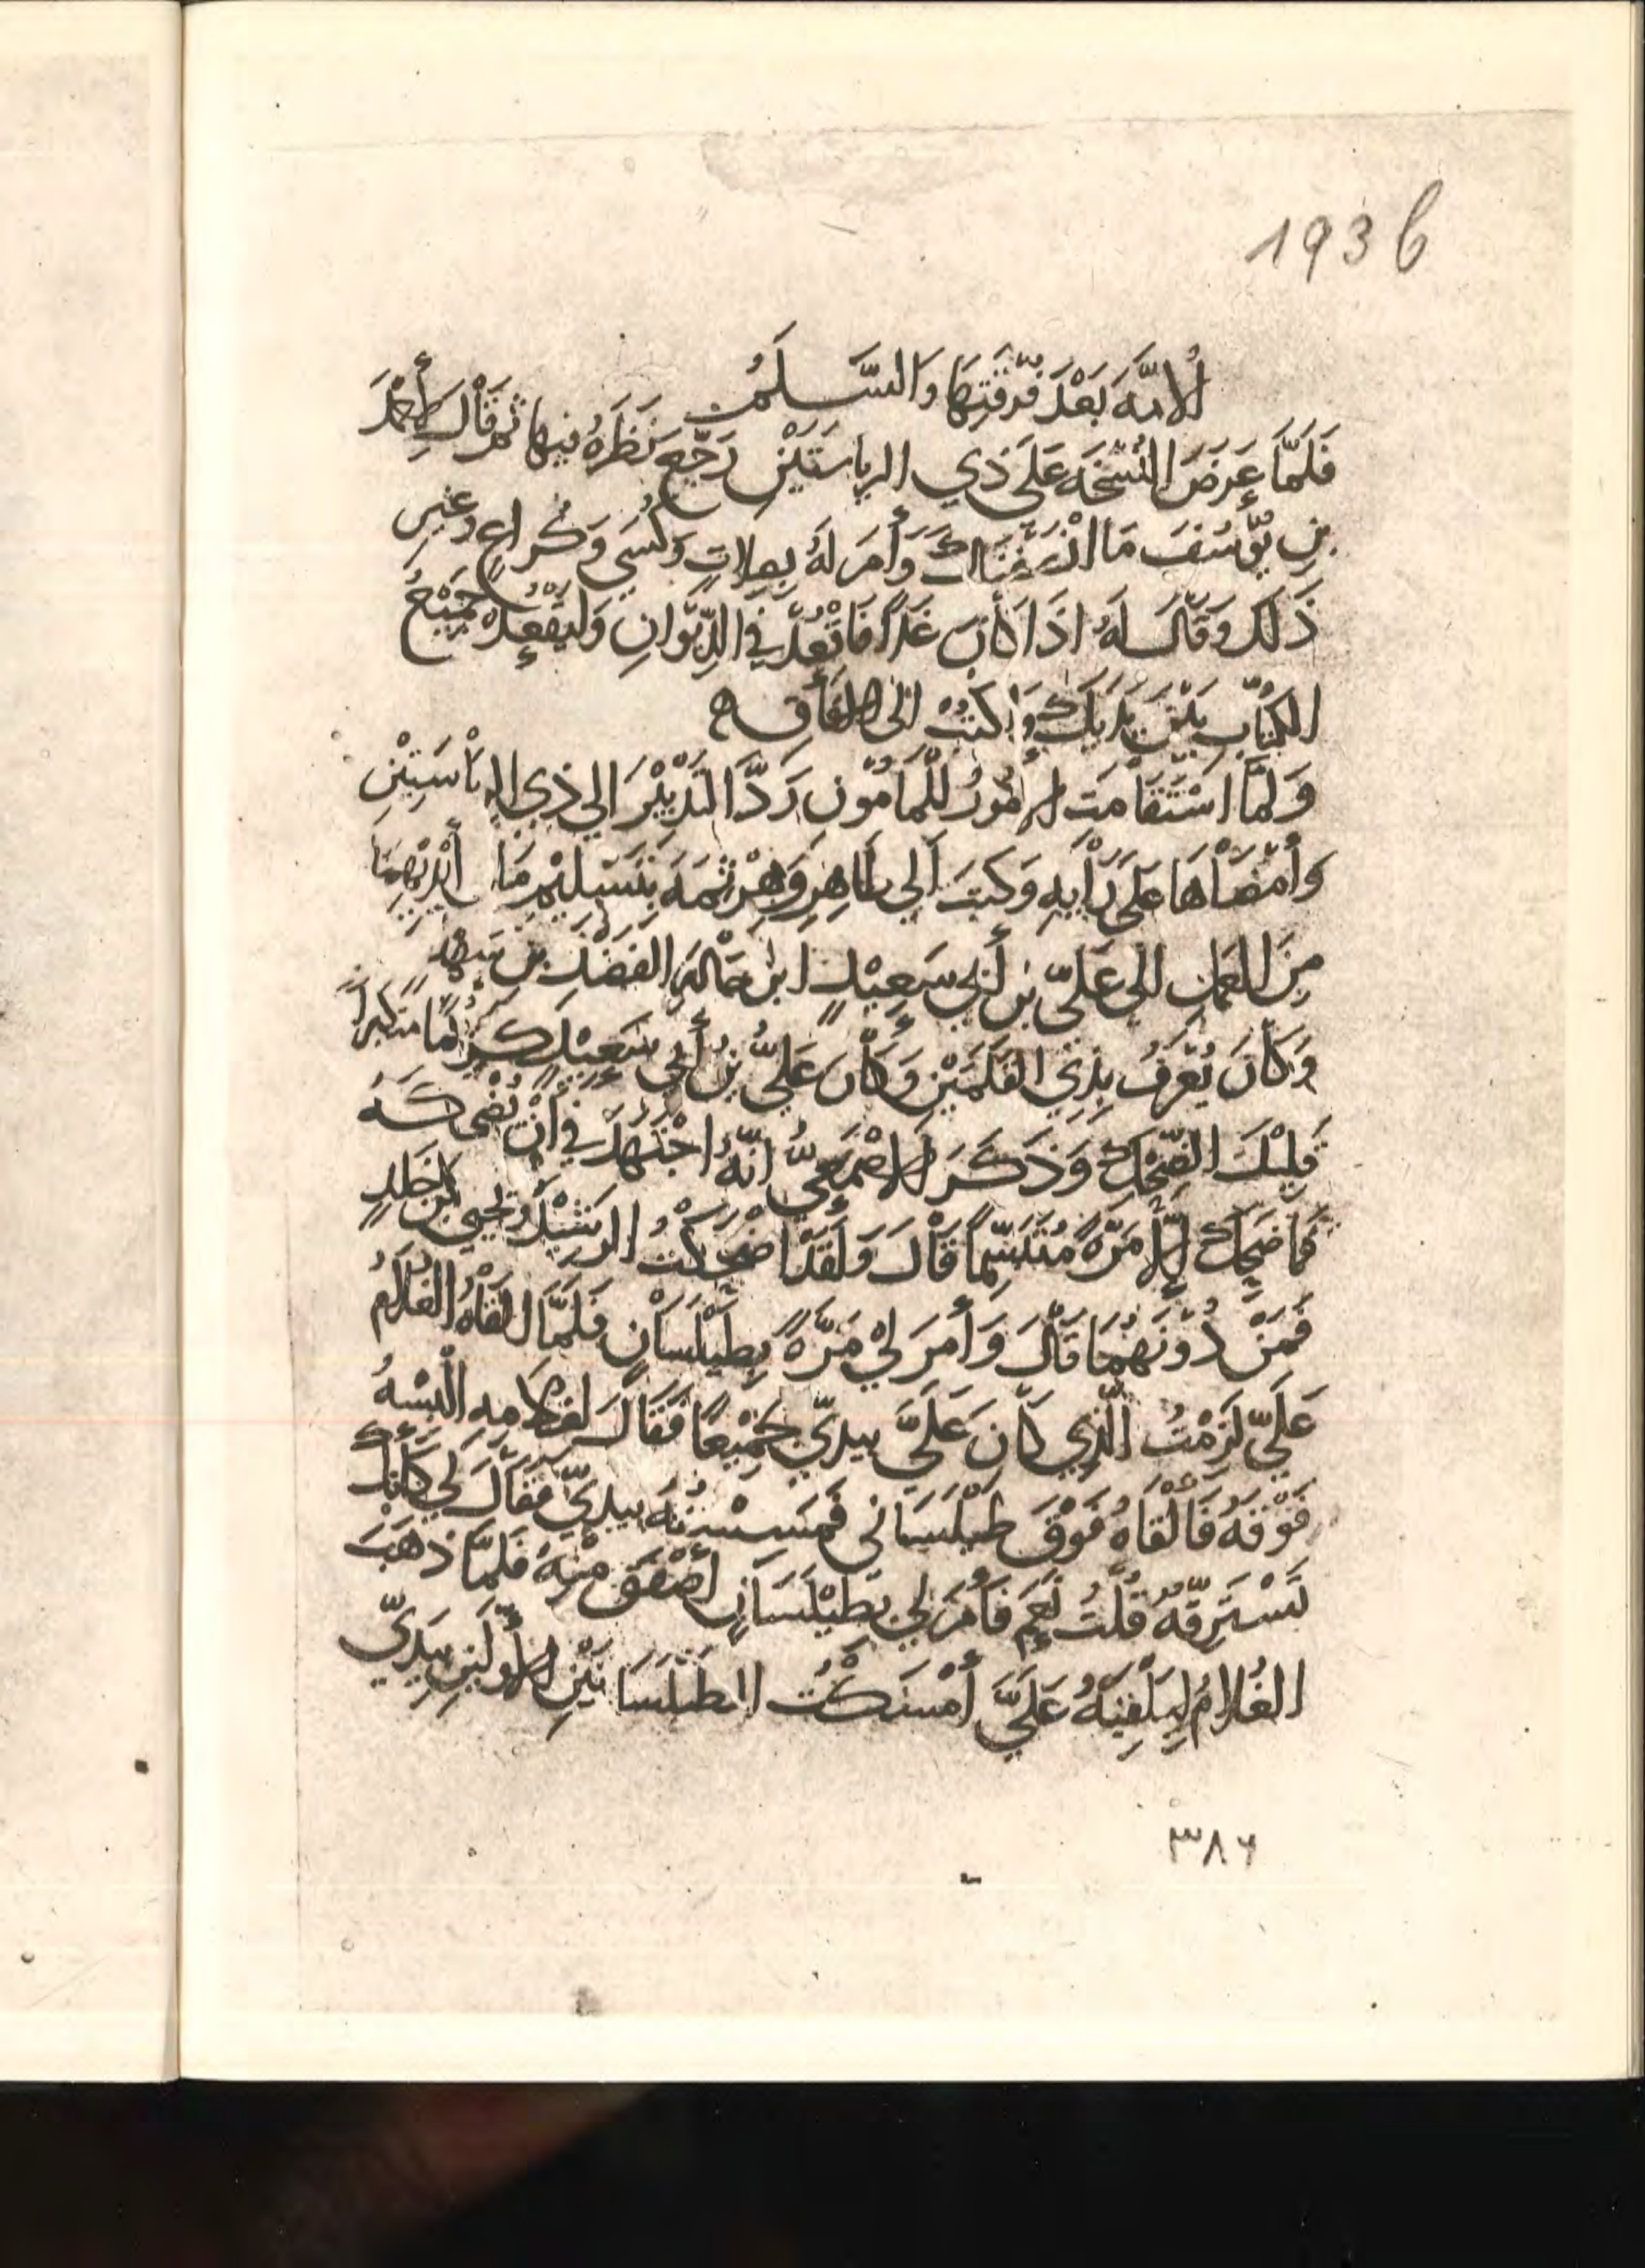 193 b
الامة بَعْدَ فُرْقَتِهَا وَالسَّلَمُ
فَلَمَّا عَرَضَ النُّسْخَةَ عَلَى ذِي الرِّيَاسَتَيْنِ رَجَّعَ نَظَرَهُ فِيهَا ثم قَالَ لِأَحْمَدَ
بن يُوسُفَ مَا أَنْصَفْنَاكَ وَأَمَرَ لَهُ بِصِلَاتٍ وَكُسَىً وَكُرَاعٍ وغير
ذَلكَ وَقَالَ لَهُ اذَا كَانَ غَدًا فَاقْعُدْ فِي الدِّيْوَانِ وَلْيَقْعُدْ جَمِيْعُ
الكُتَّابِ بَيْنَ يَدَيْكَ وَاكْتُبْ الى الافَاقِ ه
وَلَمَّا اسْتَقَامَت الأُمُورُ لِلْمَامُوْنِ رَدَّ التَّدْبِيْرَ الي ذِي الرياسَتَيْنِ
وَأَمْضَاهَا عَلَى رَأْيِهِ وَكَتَبَ الي طَاهِرٍ وَهَرْثَمَةَ بِتَسْلِيْمِ مَا بأَيْدِيْهِمَا
مِنَ العَمَلِ الى عَلِيِّ بنِ أَبِي سَعِيْدٍ ابن خَالَةِ الفَضْلِ بن سَهْلٍ
وَكَانَ يُعْرَفُ بِذِي القَلَمَيْنِ وَكَانَ عَلِيُّ بنُ أَبِي سَعِيْدٍ كَرِيْمًا مُتَكَبِّرًا
قَلِيْلَ الضِّحْكِ وَذَكَرَ الأَصْمَعِيُّ انَّهُ اجْتَهَدَ فِي أَنْ يُضْحِكَهُ
فَمَا ضَحِكَ إِلَّا مَرَّةً مُتَبَسِّمًا قَالَ وَلَقَدْ اضْحَكْتُ الرَّشِيْدَ وَيَحْيَى بْنَ خَلِدٍ
فَمَنْ دُوْنَهُمَا قَالَ وَأَمَرَ لِيْ مَرَّةً بِطَيْلَسَانٍ فَلَمَّا القَاهُ الغُلَامُ
عَلَيَّ لَزِمْتُ الَّذِي كَانَ عَلَيَّ بِيدِيَّ جَمِيْعًا فَقَالَ لغلامِهِ الْبِسْهُ
فَوْقَهُ فَأَلْقَاهُ فَوْقَ طَيْلَسَانِي فَمَسَسْتُهُ بِيدِيَّ فَقَالَ لِي كَأَنَّكَ
تَسْتَرِقُّهُ قُلْتُ نَعَمْ فَأَمَرَ لِي بِطَيْلَسَانٍ أَصْفَقَ مِنْهُ فَلَمَّا ذَهَبَ
الغُلَامُ لِيُلْقِيَهُ عَلَيَّ أَمْسَكْتُ الطَّيْلَسَانَيْنِ الأَوَّلَيْنِ بِيَدَيَّ
٣٨٦